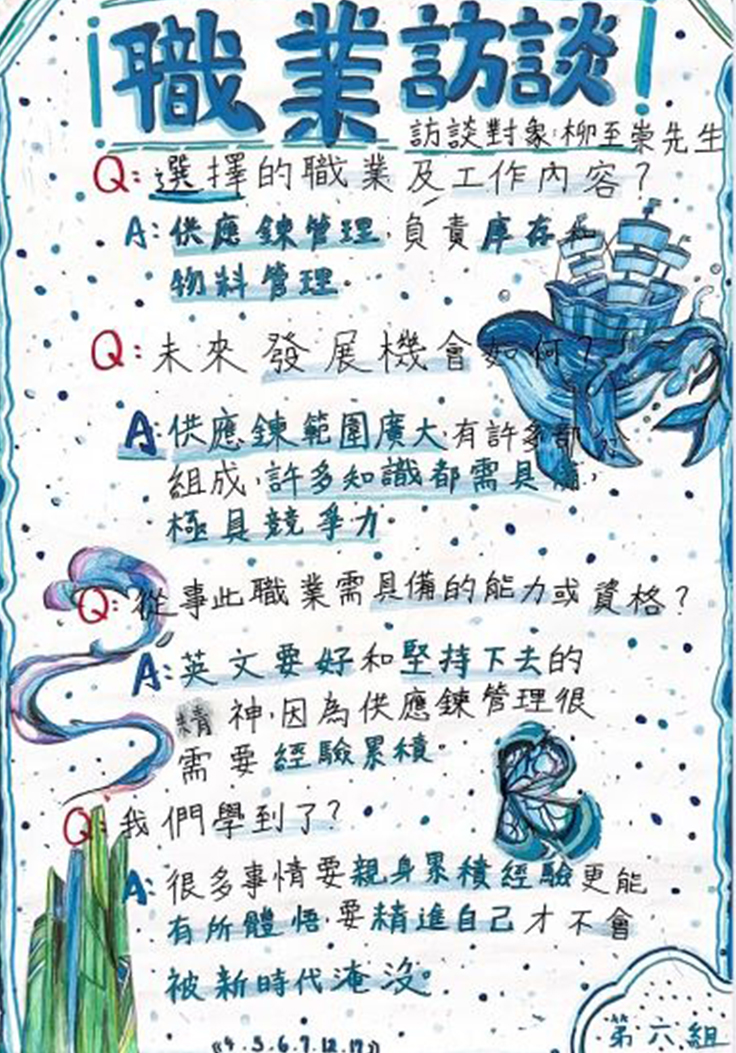 職業訪談
訪談對象:柳至崇先生
Q:選擇的職業及工作內容?
A:供應鍊管理,負責庫存和
物料管理。
Q:未來發展機會如何?
A:供應鍊範圍廣大,有許多部分
組成,許多知識都需具備,
極具競爭力
Q:從事此職業需具備的能力或資格?
A:英文要好和堅持下去的
精神,因為供應鍊管理很
需要經驗累積。
Q:我們學到了?
A:很多事情要親身累積經驗更能
有所體悟,要精進自己才不會
被新時代淹沒。
第六組
《4.5.6.7.12.17》